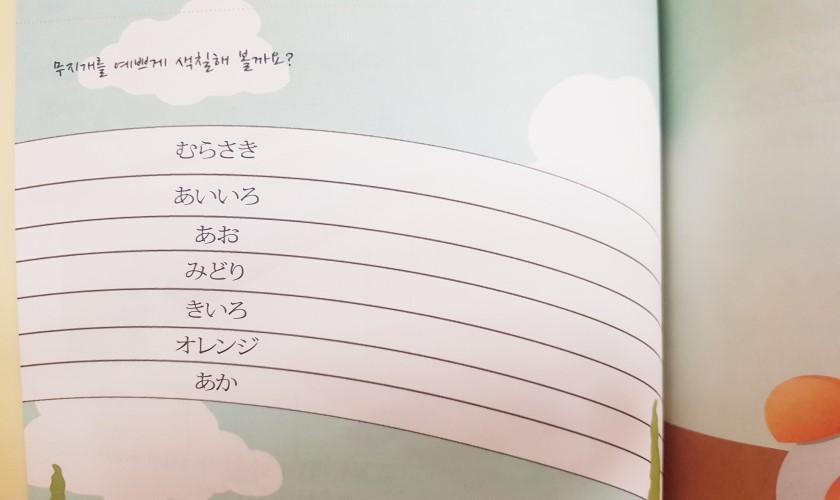 무지개를 예쁘게 색칠해 볼까요?
むらさき
あいいろ
あお
みどり
きいろ
オレンジ
あか